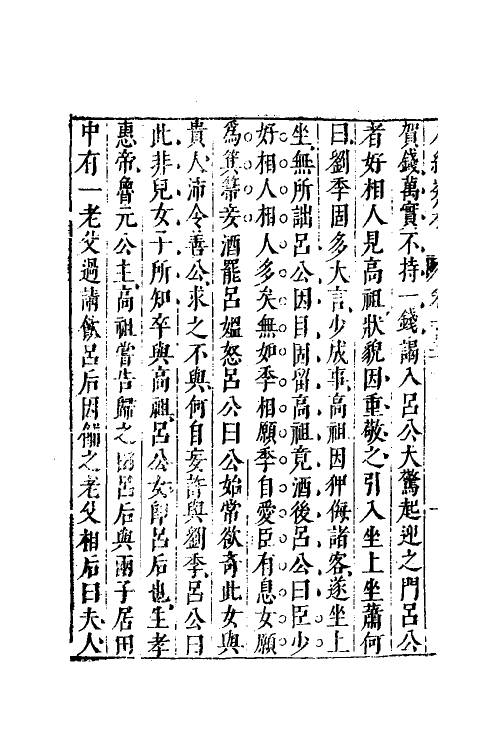 賀錢萬實不持一錢謁入呂公大驚起迎之門呂公
者好相人見高祖狀貌因重敬之引入坐上坐蕭何
曰劉季固多大言少成事高祖因狎侮諸客遂坐上
坐無所詘呂公因目固留高祖竟酒後呂公曰臣少
好相人相人多矣無如季相願季自愛臣有息女願
爲箕箒妾酒罷呂媼怒呂公曰公始常欲奇此女與
貴人沛令善公求之不與何自妄許與劉季呂公曰
此非兒女子所知卒與高祖呂公女即呂后也生孝
惠帝魯元公主高祖嘗告歸之田呂后與兩子居田
中有一老父過請飲呂后因餔之老父相后曰夫人